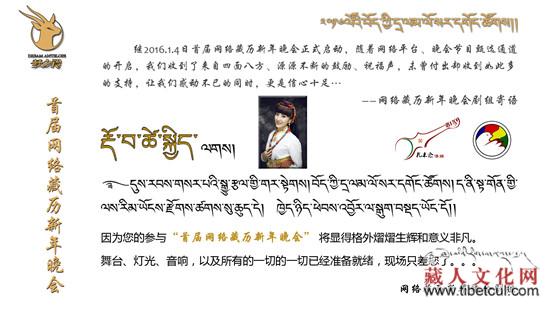 ༢༠༡༦ལོའི་བོད་ཀྱི་དྲ་ལམ་ལོ་སར་དགོང་ཚོགས།།
继2016.1.4日首届网络藏历新年晚会正式启动，随着网络平台、晚会节目甄选通道
的开启，我们收到了来自四面八方、源源不断的鼓励、祝福声，未曾付出却收到如此多
的支持，让我们感动不已的同时，更是信心十足…
——网络藏历新年晚会剧组寄语
首届网络藏历新年晚会
རྡོ་བ་ཚེ་སྐྱིད་ ལགས།
དུས་རབས་གསར་པའི་སྒྱུ་རྩལ་གྱི་གར་སྟེགས། བོད་ཀྱི་དྲ་ལམ་ལོ་སར་དགོང་ཚོགས། ད་ནི་སྟ་གོན་གྱི་
ལས་རིམ་ཡོངས་རྫོགས་ཚགས་སུ་ཚུད་དེ། ཁྱེད་ཉིད་ཕེབས་འབྱོར་ལ་སྒུག་བསྡད་ཡོད་དོ།།
因为您的参与“首届网络藏历新年晚会”将显得格外熠熠生辉和意义非凡。
舞台、灯光、音响，以及所有的一切的一切已经准备就绪，现场只差您了。。。。
网络
藏人文化网
www.tibetcul.com